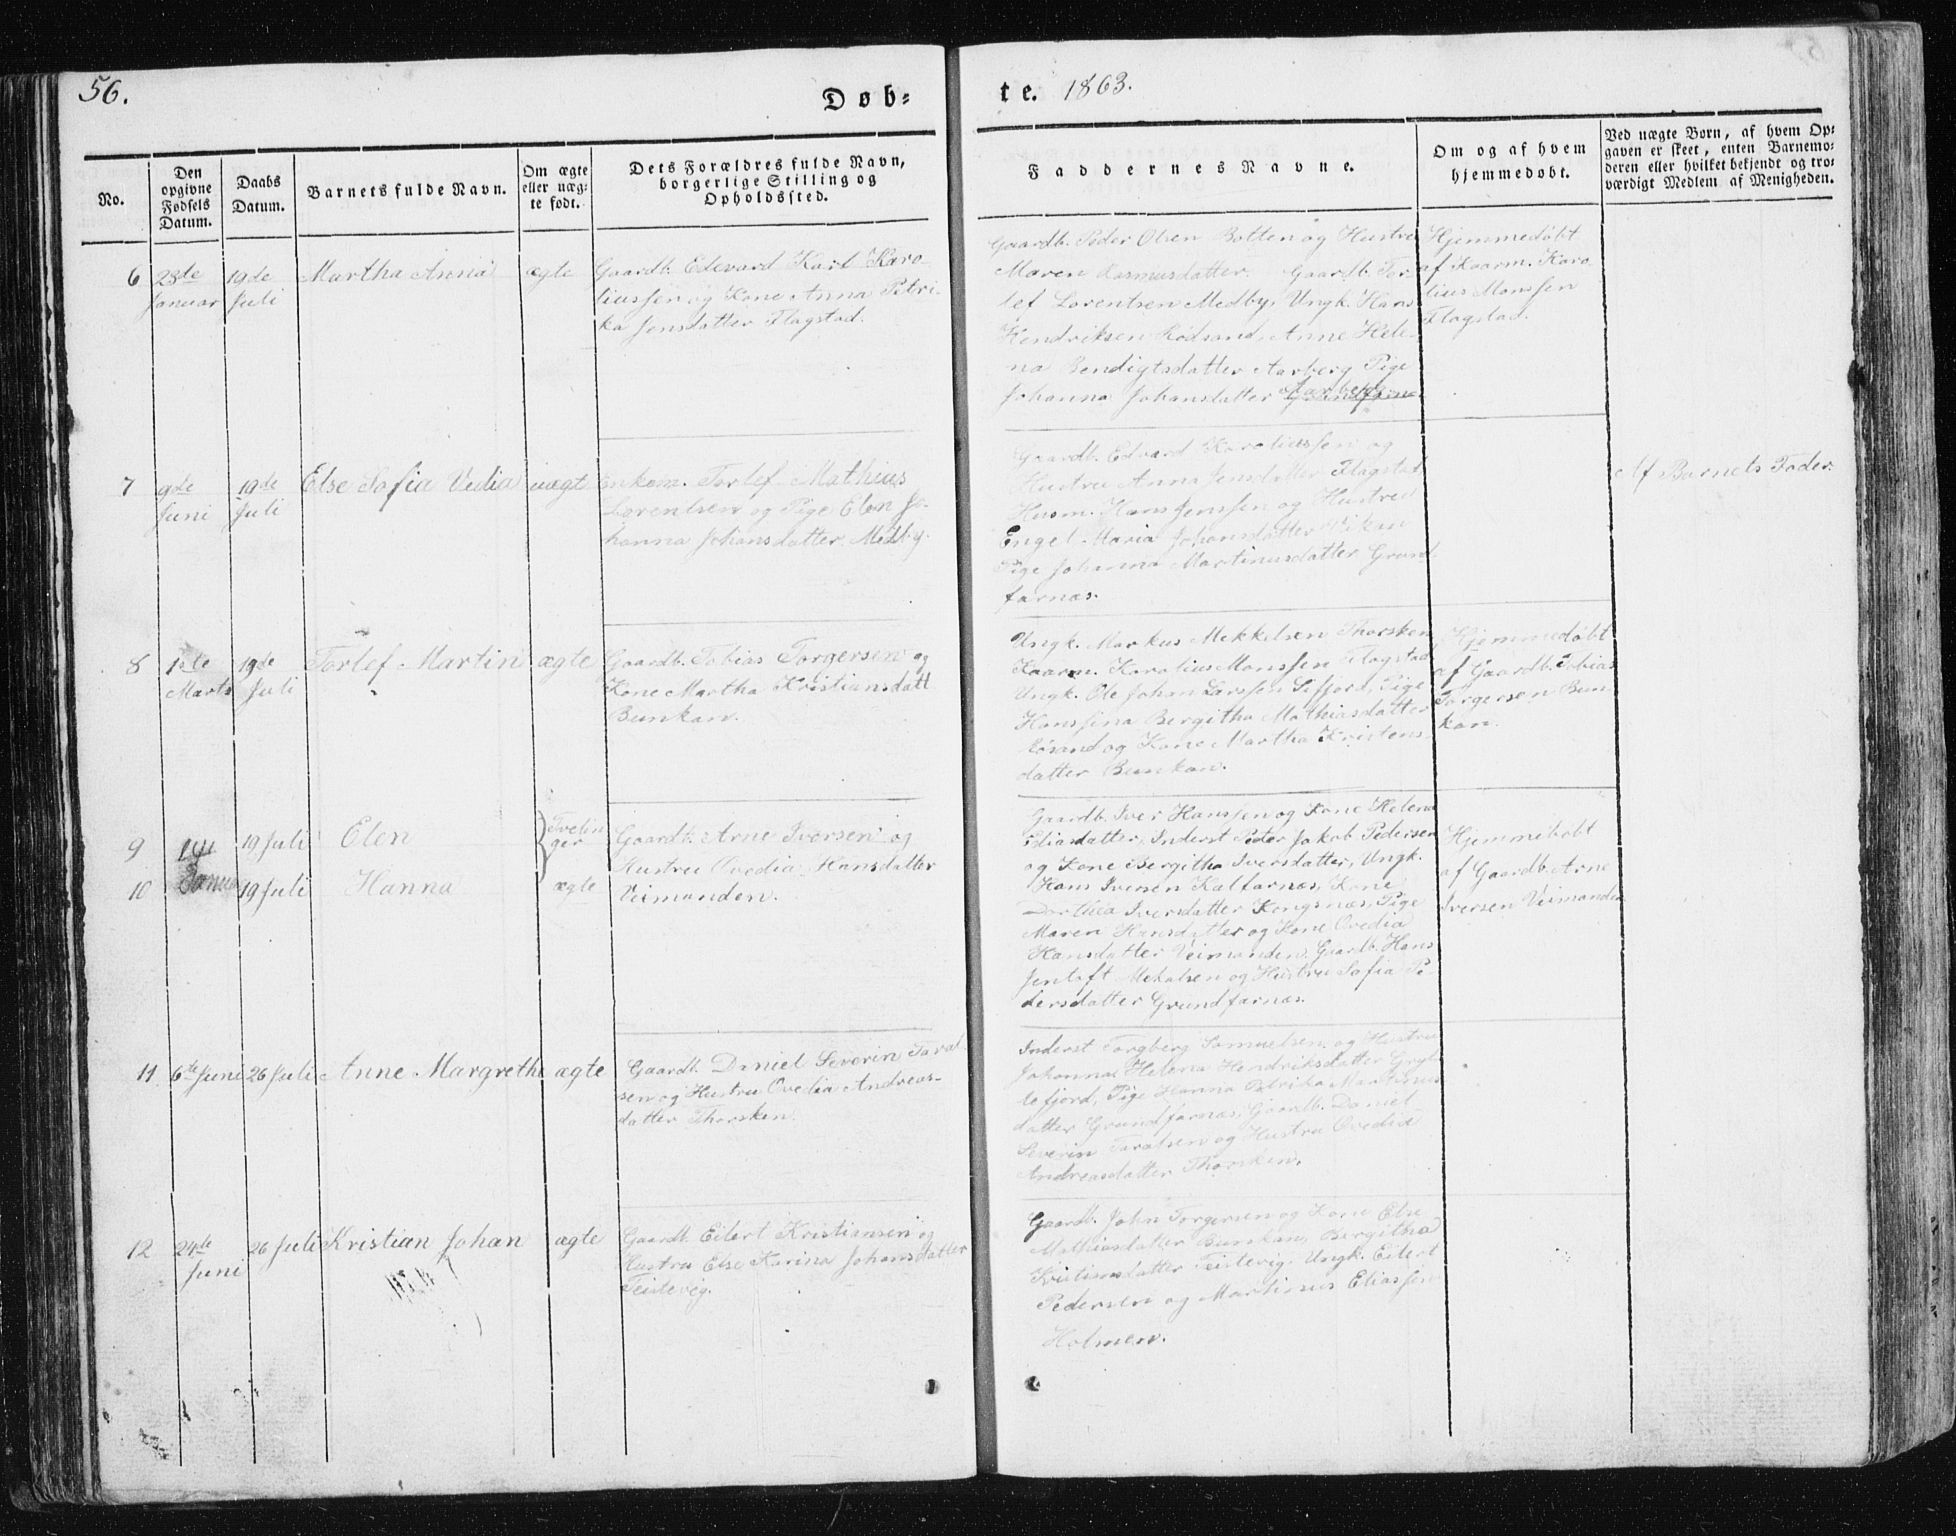 56.
Døb=
te. 1863.
No.
Den
opgivne
Fødsels
Datum.
Daabs
Datum.
Barnets fulde Navn.
Om ægte
eller uæg=
te født.
Dets Forældres fulde Navn,
borgerlige Stilling og
Opholdssted.
Faddernes Navne.
Om og af hvem
hjemmedøbt.
Ved uægte Børn, af hvem Op=
gaven er skeet, enten Barnemo=
deren eller hvilket bekjendt og tro=
værdigt Medlem af Menigheden.
6
23de
Januar
19de
Juli
Martha Anna
ægte
Gaardb. Edevard Karl Karo
liussen og Kone Anna Petri-
ka Jensdatter Flagstad.
Gaardb. Peder Olsen Botten og Hustru
Maren Rasmusdatter. Gaardb. Tor
lef Lorentsen Medby, Ungk. Hans
Hendriksen Rödsand, Anne Hele-
na Bendigtsdatter Aarberg Pige
Johanna Johansdatter Aarberg
Hjemmedöbt
af Kaarm. Karo
lius Monssen
Flagstad.
7
9de
Juni
19de
Juli
Else Sofia Vedia
uægt
Enkem. Torlef Mathius
Lorentsen og Pige Elen Jo-
hanna Johansdatter. Medby.
Gaardb. Edvard Karoliussen og
Hustru Anna Jensdatter Flagstad
Husm. Hans Jenssen og Hustru
Engel Maria Johansdatter Vikan
Pige Johanna Martinusdatter Grund
farnæs.
Af Barnets Fader.
8
1ste
Marts
19de
Juli
Torlef Martin
ægte
Gaardb. Tobias Torgersen og
Kone Martha Kristiansdatt
Bunkan.
Ungk. Markus Mekkelsen Thorsken
Kaarm. Karolius Monssen Flagstad
Ungk. Ole Johan Larssen Sifjord, Pige
Hanssina Bergitha Mathiasdatter
og Kone Martha Kristens
datter Bunkan.
Hjemmedöbt
af Gaardb. Tobias
Torgersen Bun
kan.
9
19 Juli
Elen
Tvelin
ger
Gaardb. Arne Iversen og
Hustru Ovedia Hansdatter
Veimanden.
10
Janua
19 Juli
Hanna
ægte
Gaardb. Iver Hanssen og Kone Helena
Eliasdatter, Inderst Peder Jakob Pedersen
og Kone Bergitha Iversdatter, Ungk.
Hans Iversen Kalfarnæs, Kone
Dorthea Iversdatter Kongsnæs, Pige
Maren Hansdatter og Kone Ovedia
Hansdatter Veimanden, Gaardb. Hans
Jentoft Mekalsen og Hustru Sofia Pe
dersdatter Grundfarnæs.
Hjemmebøbt
af Gaardb. Arne
Iversen Veimanden
11
6te Juni
26 Juli
Anne Margrethe
ægte
Gaardb. Daniel Severin Taral
sen og Hustru Ovedia Andreas-
datter Thorsken.
Inderst Torgberg Samuelsen og Hustru
Johanna Helena Hendriksdatter Gryl
lefjord, Pige Hanna Petrika Martinus
datter Grundfarnæs, Gaardb. Daniel
Severin Taralsen og Hustru Ovedia
Andreasdatter Thorsken.
12
24de
Juni
26 Juli
Kristian Johan
ægte
Gaardb. Eilert Kristiansen og
Hustru Else Karina Johansdatter
Teistevig.
Gaardb. John Torgersen og Kone Else
Mathiasdatter Bunkan, Bergitha
Kristiansdatter Teistevig, Ungk. Eilert
Pedersen og Martinus Eliassen
Holmen.